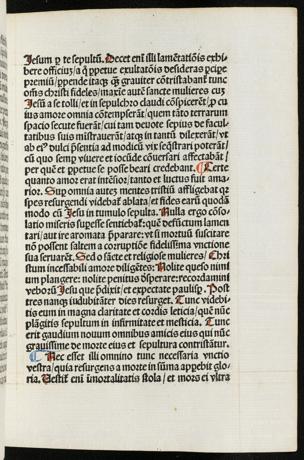 Jesum p te sepultũ. Decet eni̅ illi lamẽtatiõis exhi
bere officiuʒ / a q̃ ppetue exultatõis desideras pcipe
premiũ / ppende itaqʒ qʒ grauiter cõtristabant̃ tunc
offis christi fideles / maxie autẽ sancte mulieres cuʒ
Jesũ a se tolli / et in sepulchro claudi cõspicerẽt / p cu
ius amore omnia cõtempserãt / quem tãto terrarum
spacio secute fuerãt / cui tam deuote sepius de facul
tatibus suis mistrauerãt / atqʒ in tantũ dilexerãt / vt
ab ei⁹ dulci pñsentia ad modicũ vix seqstrari poterãt /
cũ quo semp viuere et iocũde cõuersari affectabãt /
per quẽ et ppetue se posse beari credebant. ¶ Certe
quanto amor erat intẽsior / tanto et luctus fuit ama
rior. Sup omnia autẽʒ mentes tristiũ affligebat qʒ
spes resurgendi videbat̃ ablata / et fides earũ quodã
modo cũ Jesu in tumulo sepulta. Nulla ergo cõso
lario miseris supesse sentiebat̃: que defũctum lamen
tari / aut ire aromata pparare: vt si mortuũ suscitare
nõ possent saltem a corruptiõe fidelissima vnctione
sua seruarẽt. Sed o sãcte et religiose mulieres / Chri
stum incessabili amore diligẽtes: Nolite queso nimi
um plangere: nolite penitus dsperare: recordamini
verborũ Jesu que pdixit / et expectate paulispʒ. Post
tres nanqʒ indubitãter dies resurget. Tunc videbi
tis eum in magna claritate et cordis leticia / quẽ nũc
plãgitis sepultum in infirmitate et mesticia. Tunc
erit gaudium nouum omnibus amicis eius qui nũc
grauissime de morte eius et sepultura contristãtur.
¶ Nec esset illi omnino tunc necessaria vnctio
vestra / quia resurgens a morte in sũma appebit glo
ria. Vestiet̃ eni̅ im̃ortalitatis stola / et mors ei vltra